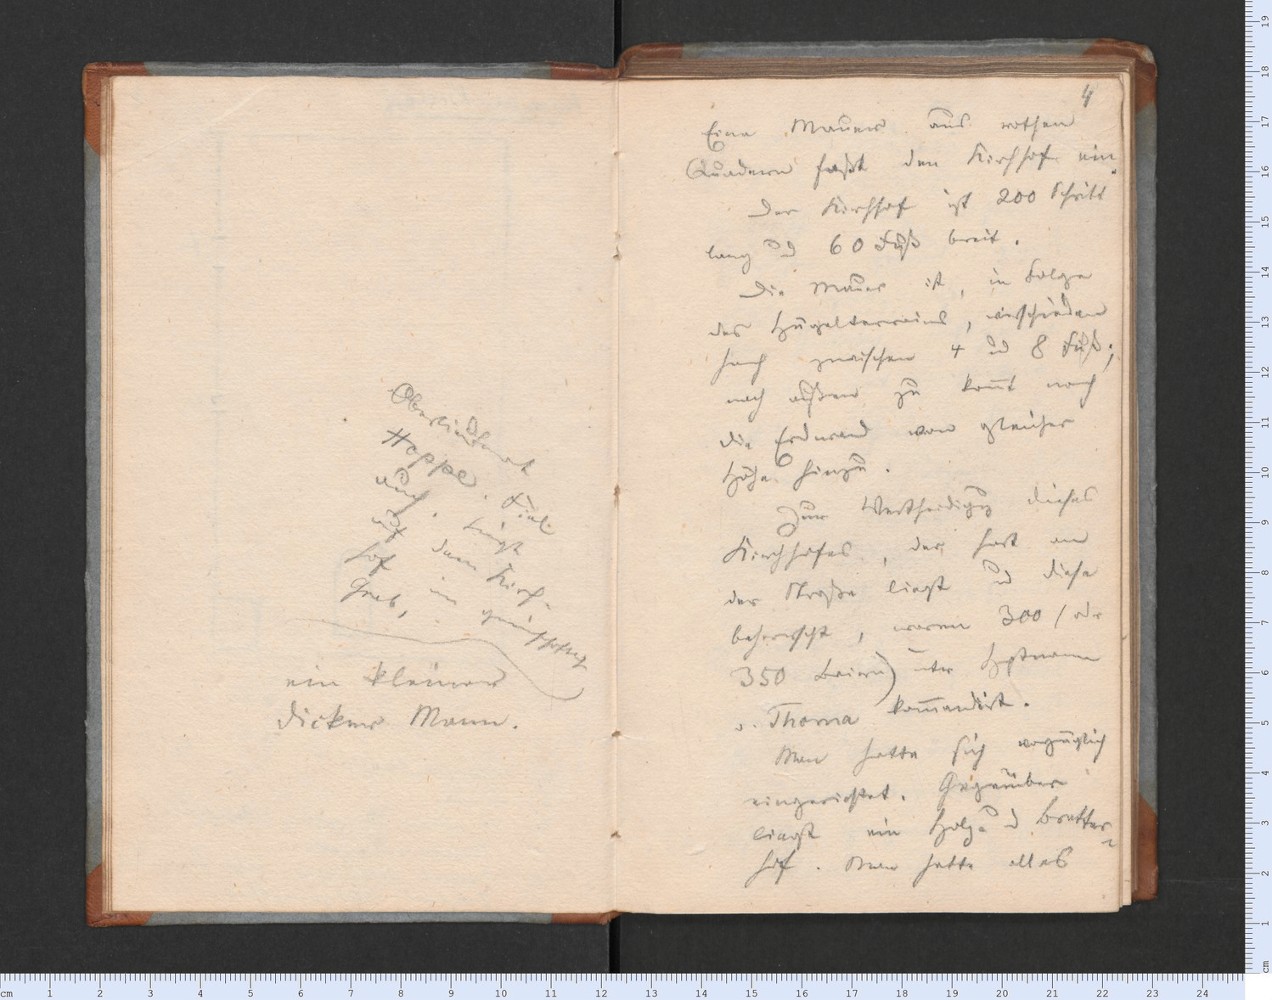 Oberlieutenant
Hoppe. Fiel
auch. Liegt
auf dem Kirch-
hof im gemeinschaftl.
Grab,
ein kleiner
dicker Mann.
4
Eine Mauer aus rothen
Quadern faßt den Kirchhof ein.
Der Kirchhof ist 200 Schritt
lang und 60 Fuß breit.
Die Mauer ist, in Folge
des Hügelterrains, verschieden
hoch zwischen 4 und 8 Fuß;
nach außen zu kommt noch
die Erdwand von gleicher
Höhe hinzu.
Zur Vertheidigung dieses
Kirchhofes, der hart an
der Straße liegt und diese
beherrscht, waren 300 / oder
350 Baiern) unter Hptmann
v. Thoma kommandirt.
Man hatte sich vorzüglich
eingerichtet. Gegenüber
liegt ein Holz- und Bretter-
hof. Man hatte alles